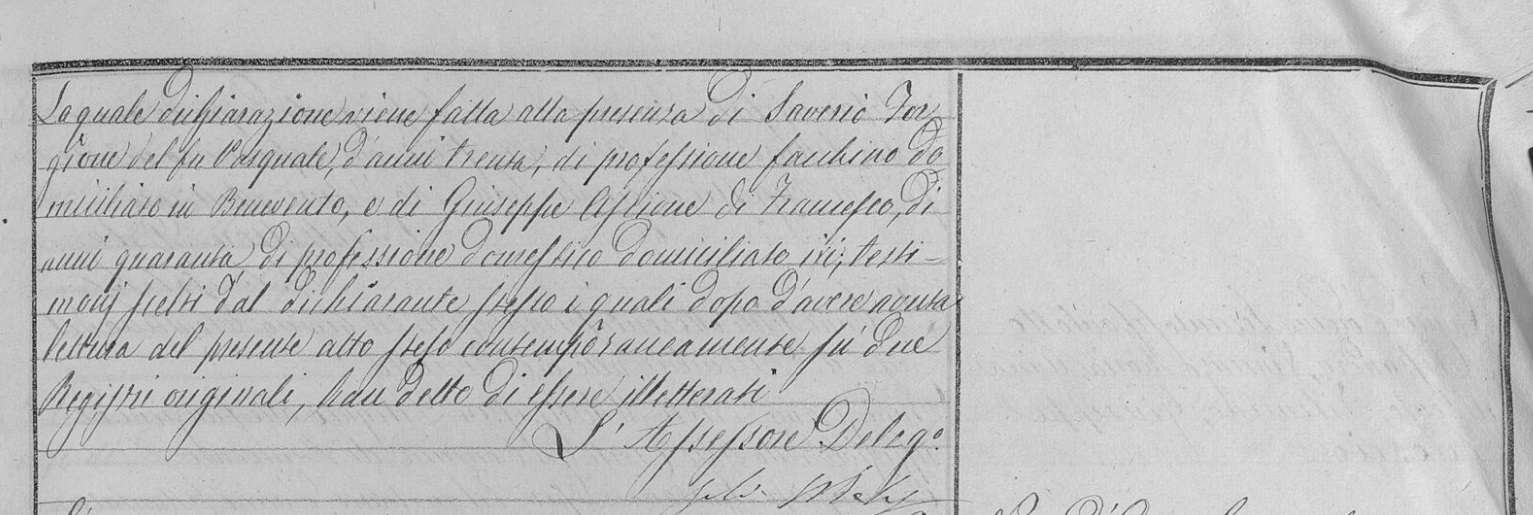 La quale dichiarazione viene fatta alla presenza di Saverio For
gione del fu Pasquale, d'anni trenta, di professione facchino do
miciliato in Benevento, e di Giuseppe di Francesco, di
anni quaranta di professione domestico domiciliato ivi, testi-
monj scelti dal dichiarante stesso i quali dopo d'avere avuta
lettura del presente atto steso contemporaneamente su due
Registri originali, han detto di essere illetterati
L'Assessore Deleg.o